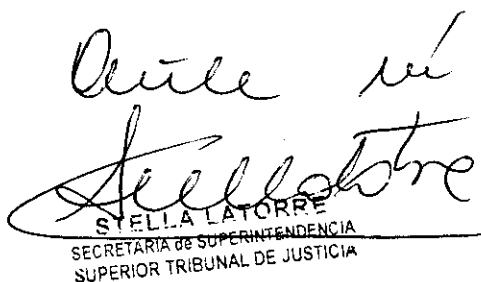 Ante mí
STELLA LATORRE
SECRETARIA de SUPERINTENDENCIA
SUPERIOR TRIBUNAL DE JUSTICIA